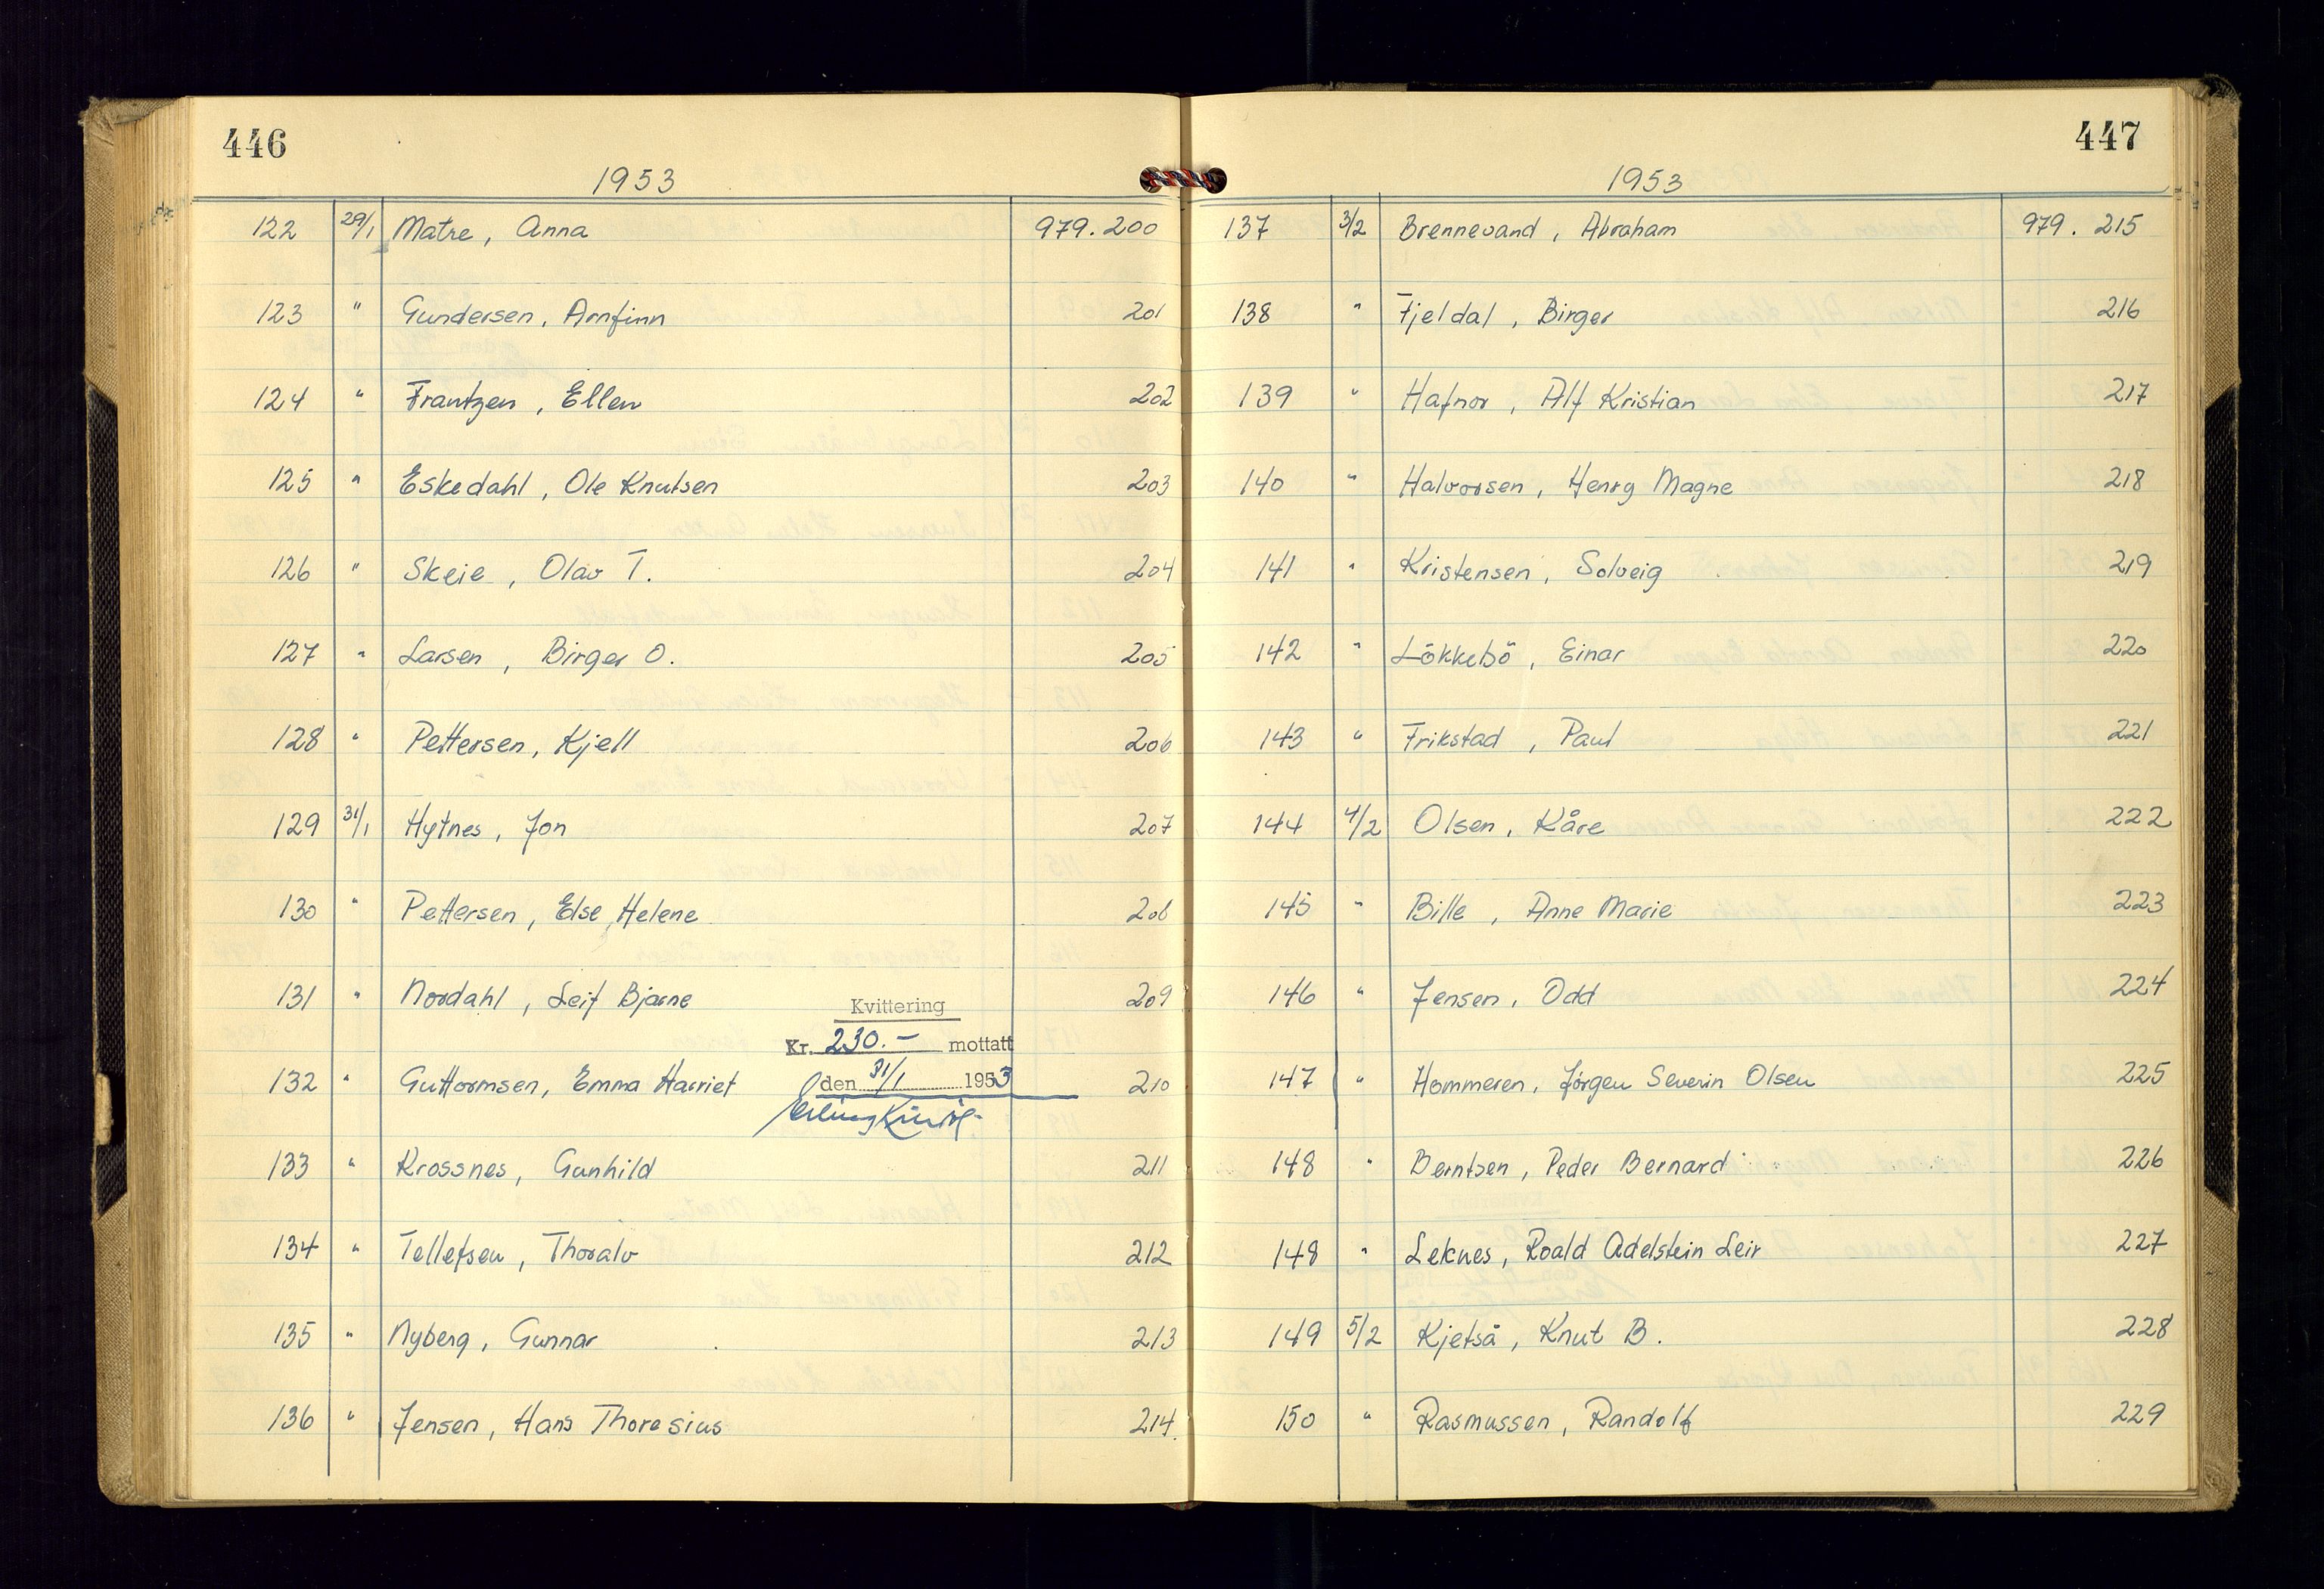 446
1953
122 29/1 Matre, Anna 979.200
123 " Gundersen, Arnfinn 201
124 " Frantzen, Ellen 202
125 " Eskedahl, Ole Knutsen 203
126 " Skeie, Olav T. 204
127 " Larsen, Birger O. 205
128 " Pettersen, Kjell 206
129 31/1 Hytnes, Jon 207
130 " Pettersen, Else Helene 208
131 " Nordahl, Leif Bjarne 209
Kvittering
Kr. 230.- mottatt
132 " Guttormsen, Emma Harriet den 31/1 1953 210
133 " Krossnes, Gunhild 211
134 " Tellefsen, Thoralv 212
135 " Nyberg, Gunnar 213
136 " Jensen, Hans Thoresius 214.
447
1953
137 3/2 Brennevand, Abraham 979. 215
138 " Fjeldal, Birger 216
139 " Hafnor, Alf Kristian 217
140 " Halvorsen, Henry Magne 218
141 " Kristensen, Solveig 219
142 " Lökkebö, Einar 220
143 " Frikstad, Paul 221
144 4/2 Olsen, Kåre 222
145 " Bille, Anne Marie 223
146 " Jensen, Odd 224
147 " Hommeren, Jörgen Severin Olsen 225
148 " Berntsen, Peder Bernard 226
148 " Leknes, Roald Adelstein Leir 227
149 5/2 Kjetså, Knut B. 228
150 " Rasmussen, Randolf 229